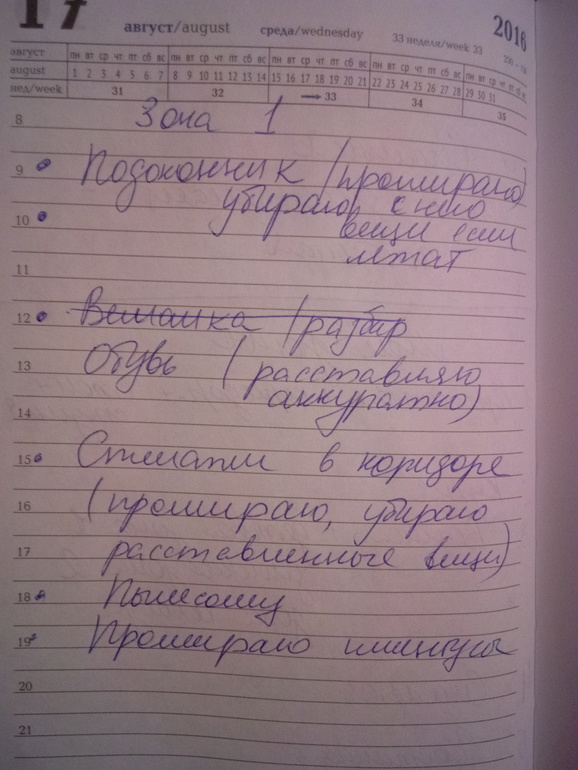 17 август/august среда/wednesday 33 неделя/week 33 2016
август пн вт ср чт пт сб вс пн вт ср чт пт сб вс пн вт ср чт пт сб вс пн вт ср чт пт сб вс пн вт ср чт пт сб вс
august 1 2 3 4 5 6 7 8 9 10 11 12 13 14 15 16 17 18 19 20 21 22 23 24 25 26 27 28 29 30 31
нед/week 31 32 33 34 35
8 Зона 1
9 Подоконник (протираю)
убираю с него
10 вещи если
11 лежат
12 Вешалка (разбир
13 Обувь (расставляю
14 аккуратно)
15 Стеллажи в коридоре
16 (протираю, убираю
17 расставленные вещи)
18 Пылесошу
19 Протираю плинтусы
20
21